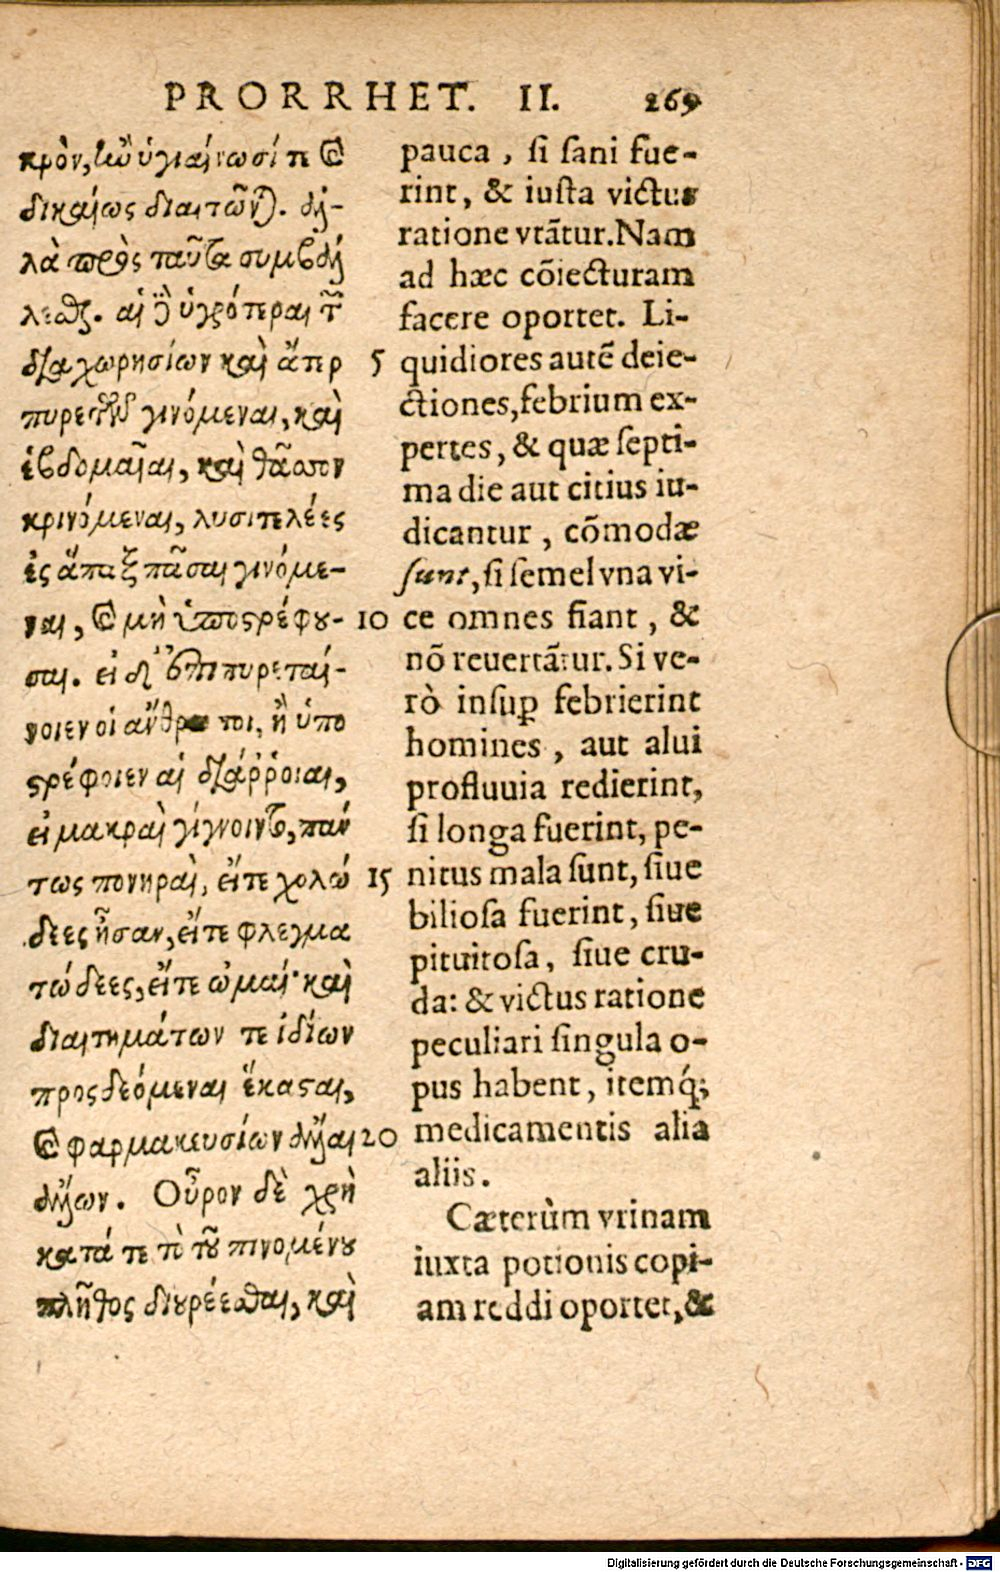 PRORRHET. II. 269
κρὸν, ἢν ὑγιαίνωσί τε καὶ
δικαίως διαιτῶνται. ἀλ-
λὰ πρὸς ταῦτα συμβάλ
λεσθαι. αἱ δὲ ὑγρότεραι τῶν
διαχωρησίων καὶ ἄπερ
πυρετοὶ γινόμεναι, καὶ
ἑβδομαῖαι, καὶ θᾶσσον
κρινόμεναι, λυσιτελέες
ἐς ἅπαξ πᾶσαι γινόμε-
ναι, καὶ μὴ ὑποςρέφου-
σαι. εἰ δ' ἐπιπυρεταί-
νοιεν οἱ ἄνθρωποι, ἢ ὑπο
ςρέφοιεν αἱ διάῤῥοιαι,
εἰ μακραὶ γίγνοιντο, πάν
τως πονηραὶ, εἴτε χολώ
δεες ἦσαν, εἴτε φλεγμα
τώδεες, εἴτε ὠμαί· καὶ
διαιτημάτων τε ἰδίων
προςδεόμεναι ἕκαςαι,
καὶ φαρμακευσίων ἄλλαι
ἄλλων. Οὖρον δὲ χρὴ
κατά τε τὸ τοῦ πινομένου
πλῆθος διουρέεσθαι, καὶ
5
10
15
20
pauca, si sani fue-
rint, & iusta victus
ratione vtãtur. Nam
ad hæc cõiecturam
facere oportet. Li-
quidiores autẽ deie-
ctiones, febrium ex-
pertes, & quæ septi-
ma die aut citius iu-
dicantur, cõmodæ
sunt, si semel vna vi-
ce omnes fiant, &
nõ reuertãtur. Si ve-
rò insuꝑ febrierint
homines, aut alui
profluuia redierint,
si longa fuerint, pe-
nitus mala sunt, siue
biliosa fuerint, siue
pituitosa, siue cru-
da: & victus ratione
peculiari singula o-
pus habent, itemq́;
medicamentis alia
aliis.
Cæterùm vrinam
iuxta potionis copi-
am reddi oportet, &
Digitalisierung gefördert durch die Deutsche Forschungsgemeinschaft - DFG